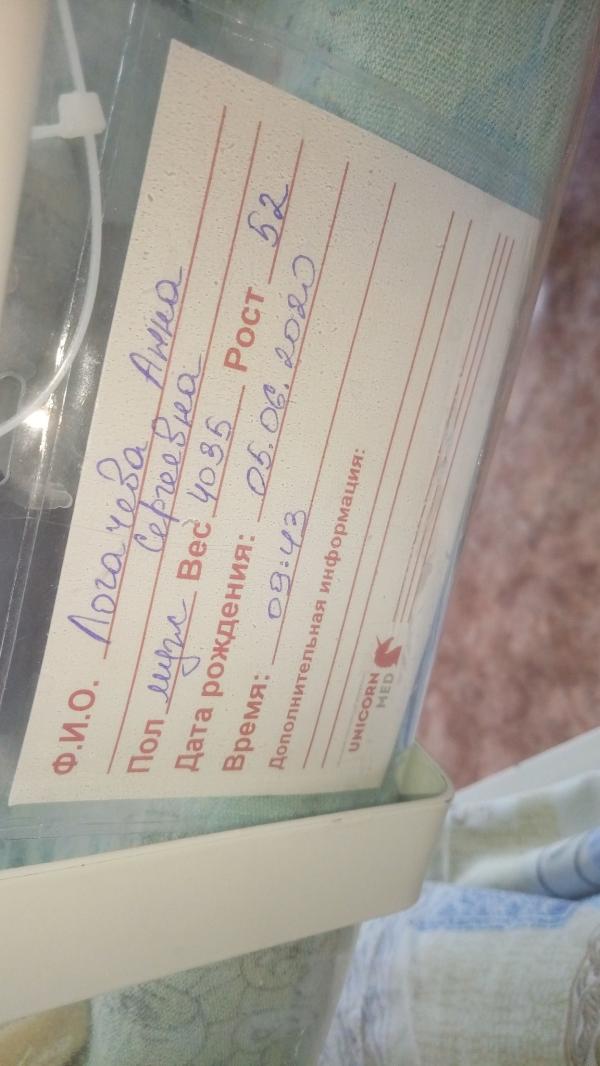 Ф.И.О. Логачева Анна
Сергеевна
Пол муж Вес 4035 Рост 52
Дата рождения: 05.06.2020
Время: 09:43
Дополнительная информация:
UNICORN
MED